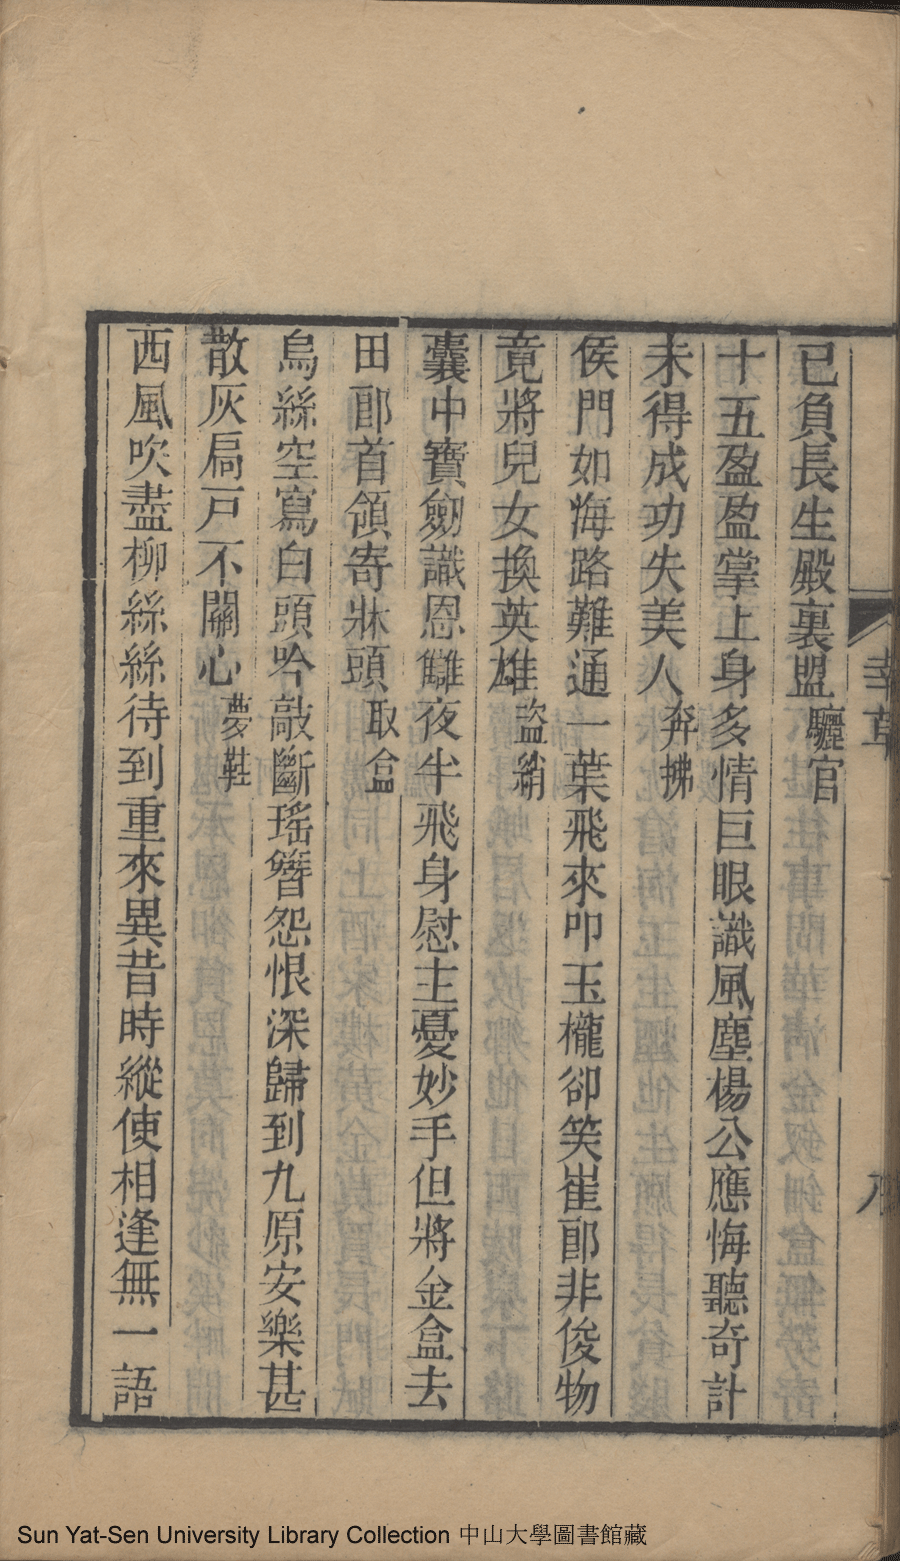 已負長生殿裏盟驪宮
十五盈盈掌上身多情巨眼識風塵楊公應悔聽奇計
未得成功失美人奔拂
侯門如海路難通一葉飛來叩玉櫳卻笑崔郎非俊物
竟將兒女換英雄盜綃
囊中寶劒識恩讎夜半飛身慰主憂妙手但將金盒去
田郎首領寄牀頭取盒
烏絲空寫白頭吟敲斷瑤簪怨恨深歸到九原安樂甚
散灰扃戸不關心夢鞋
西風吹盡柳絲絲待到重來異昔時縱使相逢無一語
Sun Yat-Sen University Library Collection 中山大學圖書館藏